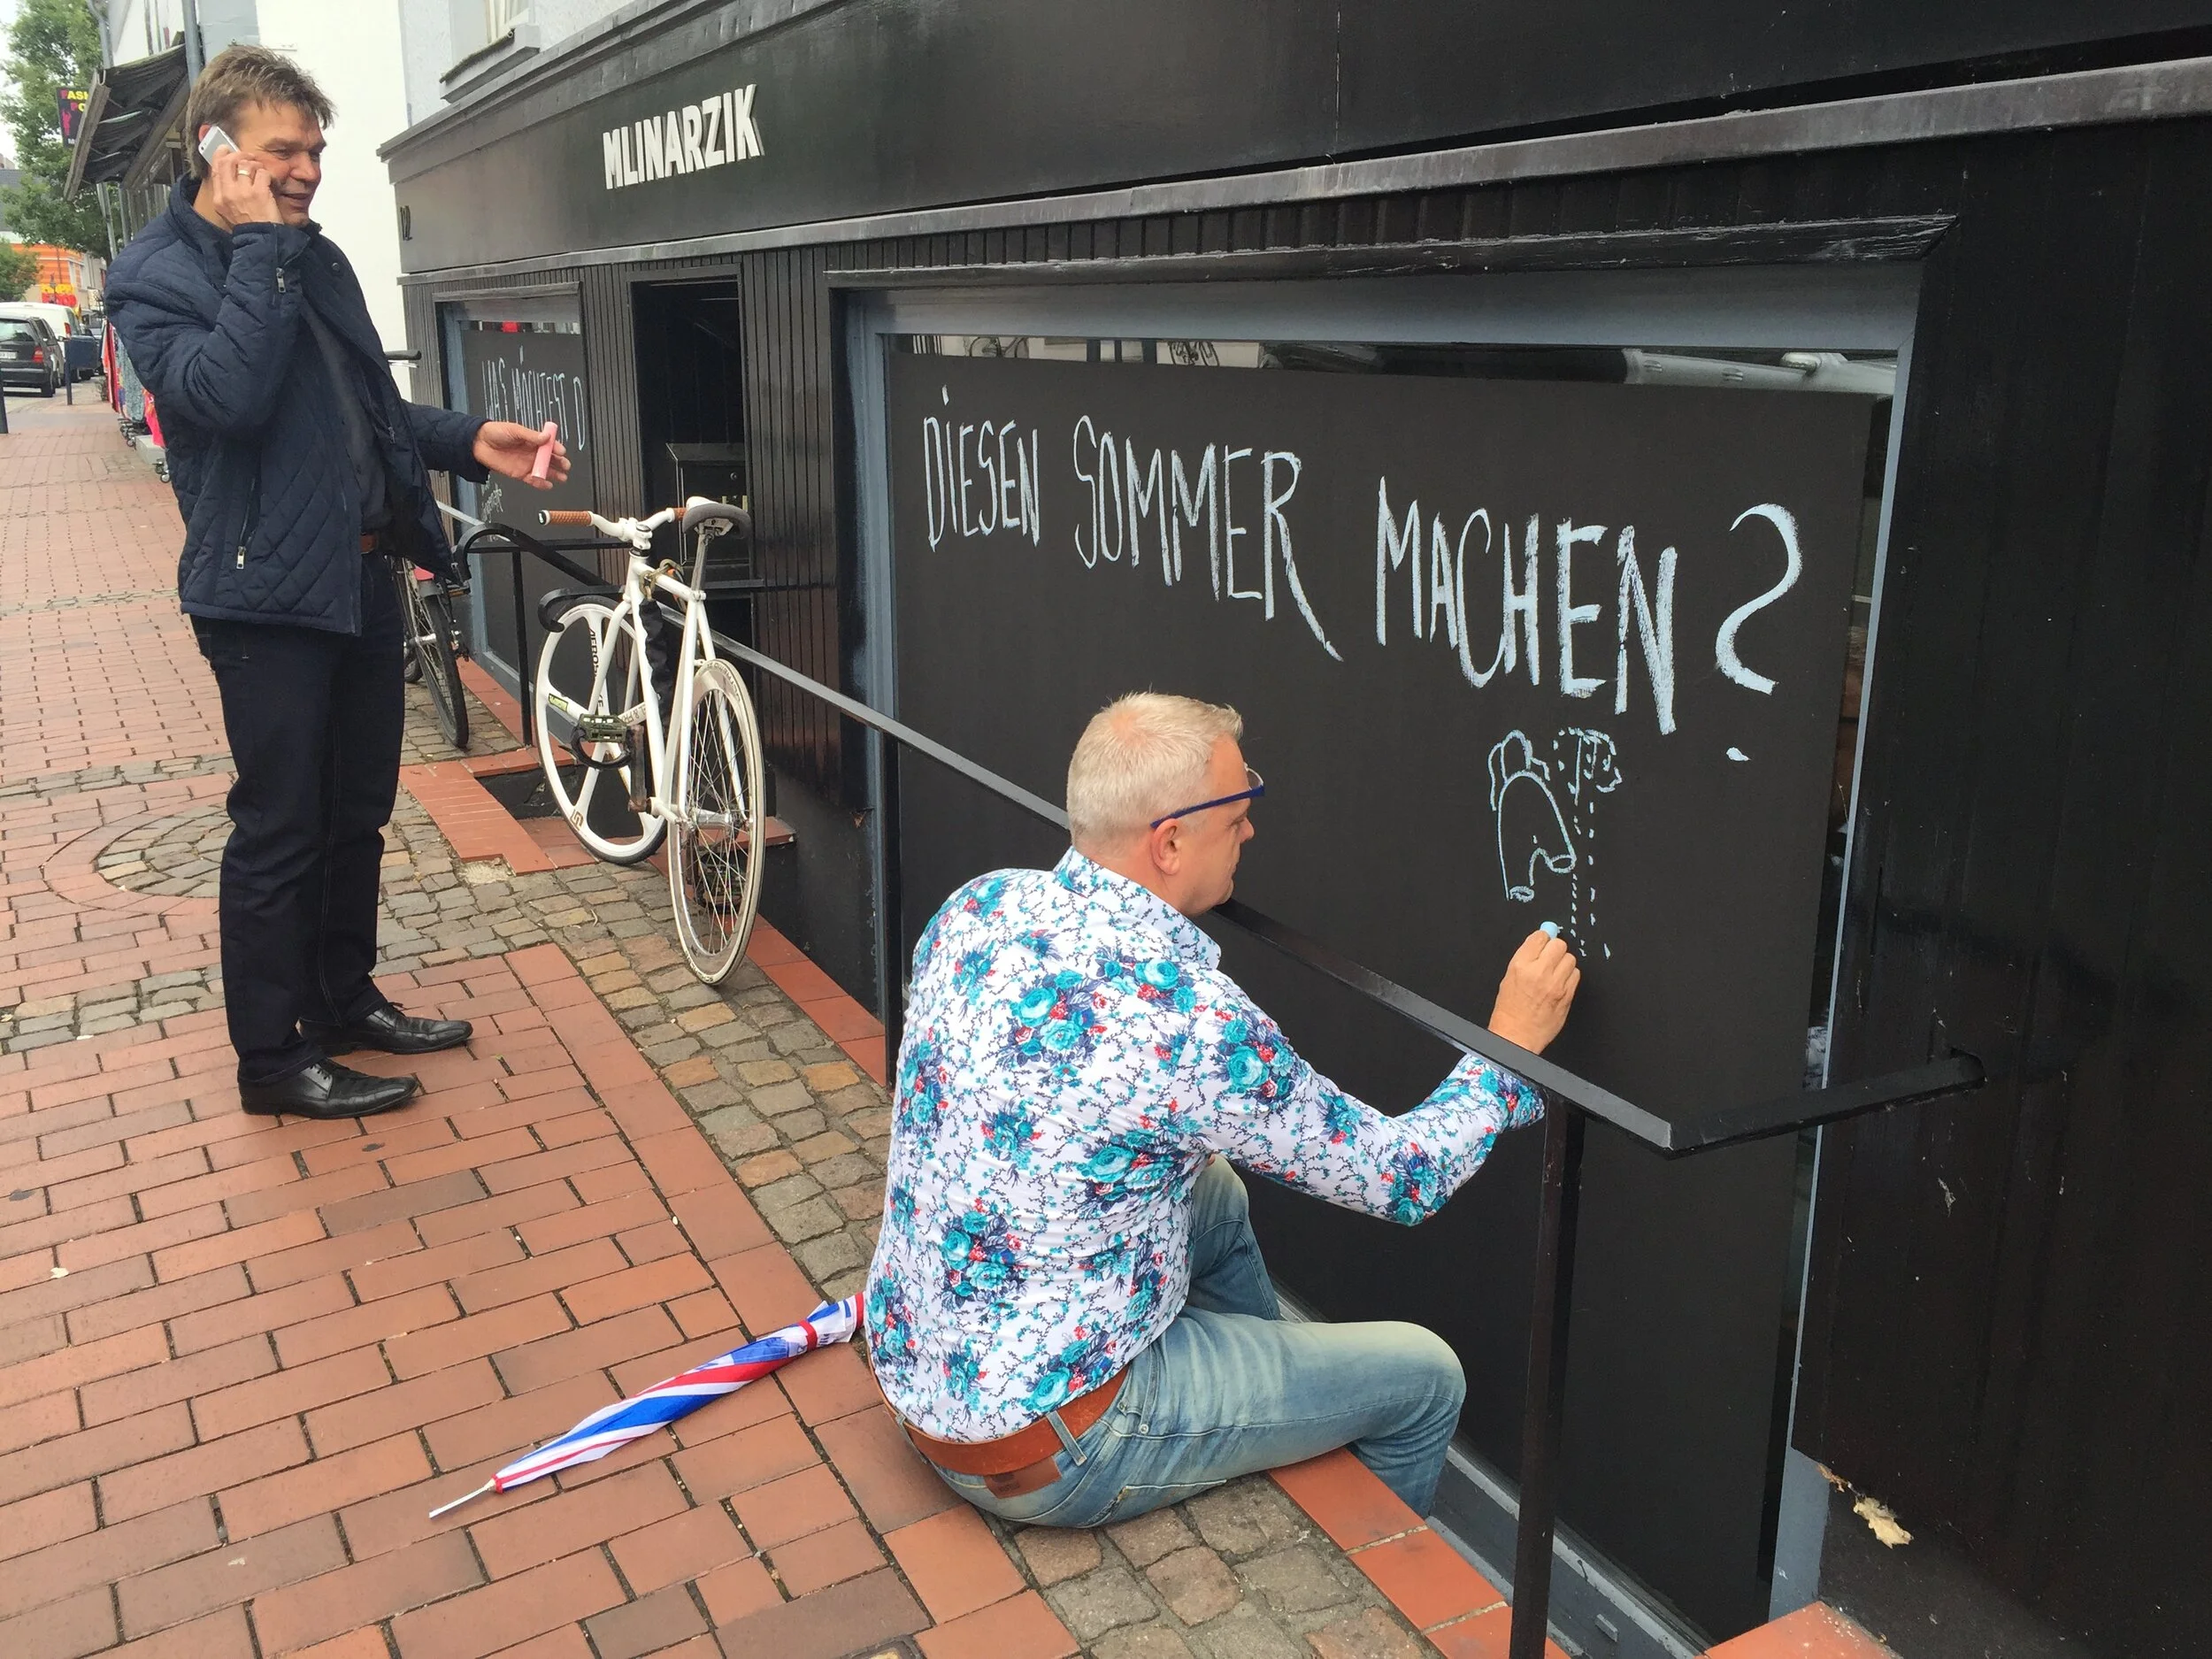 MLINARZIK
WAS MÖCHTEST D
DIESEN SOMMER MACHEN?